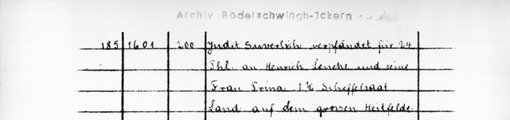 Archiv Bodelschwingh-Ickern
185 1601 200 Judit Suverlich verpfändet für 24
Thl. an Henrich Lencke und seine
Frau Trina 1½ Scheffelsaat
Land auf dem grossen Heitfelde